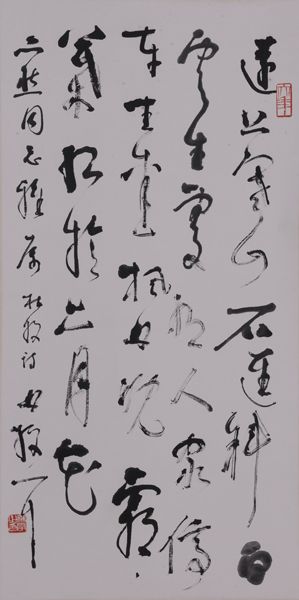 遠上寒山石逕斜白
雲生處有人家停
車坐愛楓林晚霜
葉紅於二月花
同志雅屬 杜牧詩 林散